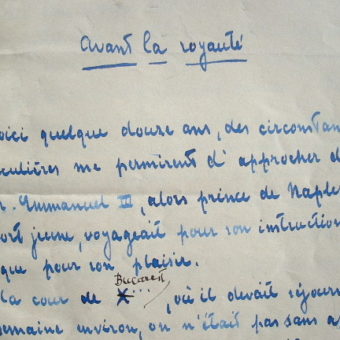 avant la royauté
oici quelque douze ans, des circonstan
culières me permirent d'approcher d
r. Emmanuel III, alors prince de Naple
ort jeune, voyageait pour son instruction
que pour son plaisir.
Bucarest
la cour de X***, où il devait séjour
emaine environ, on n'était pas sans a